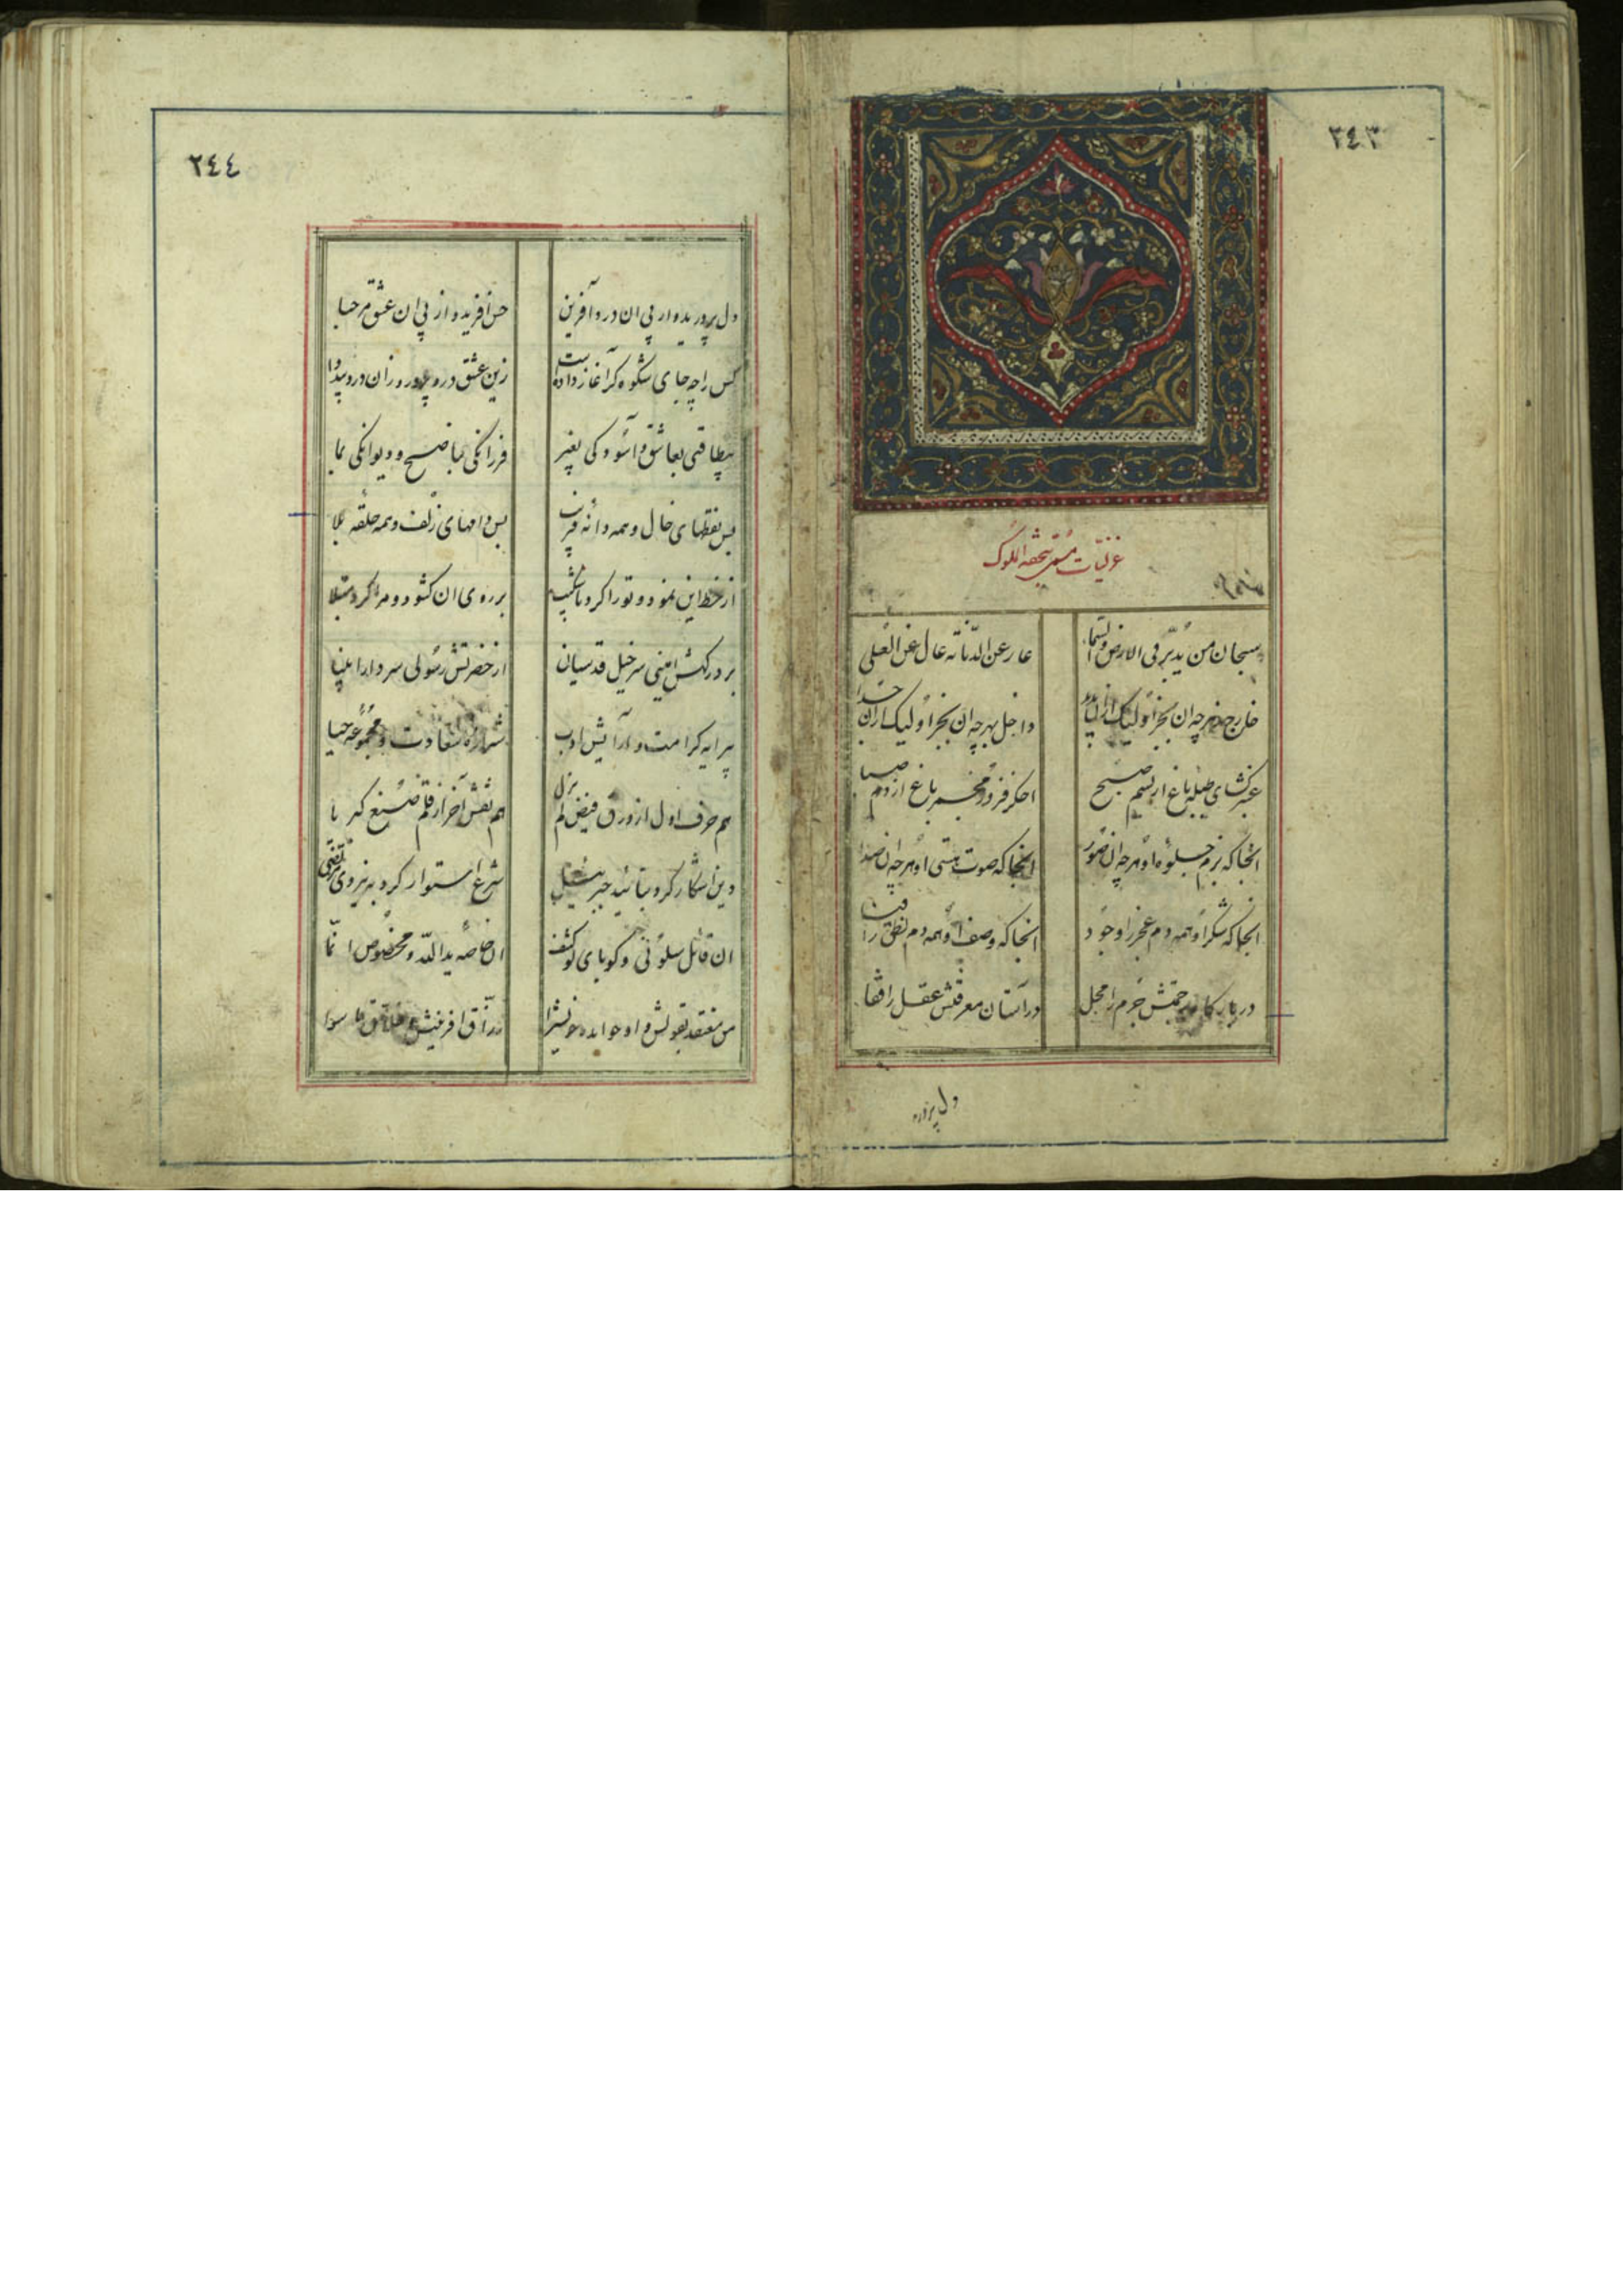 ٢٤٣
غزلیات مسمی بتحفه الملوک
سبحان من یدبر فی الارض والسما
عار عن الدنائه عال عن العلی
خارج ز هرچه ان بجز او لیک ازان پدید
داخل بهرچه ان بجز او لیک ازان جدا
عنبر کشای طبله باغ از نسیم صبح
اخکر فروز مجمر باغ از دم صبا
انجا که بزم جلوه او هرچه ان صور
انجا که صوت هستی او هرچه ان صدا
انجا که شکر او همه دم عجز را وجود
انجا که وصف او همه دم نطق را فنا
در بارکاه رحمتش جرم را محل
در آستان معرفتش عقل را قفا
دل پرور
٢٤٤
دل پرورید و از پی ان درد آفرین
حسن افرید و از پی ان عشق مرحبا
کس را چه جای شکوه که آغاز داده است
زین عشق درد پرور و زان درد بیدوا
بیطاقتی بعاشق و آسودکی بغیر
فرزانکی بناصح و دیوانکی بما
بس نقطهای خال و همه دانه فریب
بس دامهای زلف و همه حلقه بلا
از خط این نمود و تو را کرد ناشکیب
بر روی ان کشود و مرا کرد مبتلا
بر درکهش امینی سرخیل قدسیان
از حضرتش رسولی سردار انبیا
پیرایه کرامت و آرایش ادب
شیرازه سعادت و مجموعه حیا
هم حرف اول از ورق فیض لم یزل
هم نقش آخر از قلم صنع کبریا
دین اشکار کرد بتائید جبرئیل
شرع استوار کرد به نیروی مرتضی
ان قائل سلونی و کویای لو کشف
ان خاصه ید الله و مخصوص انما
من معتقد بقولش و او خوانده خویش را
رزاق افرینش و خلاق ما سوا